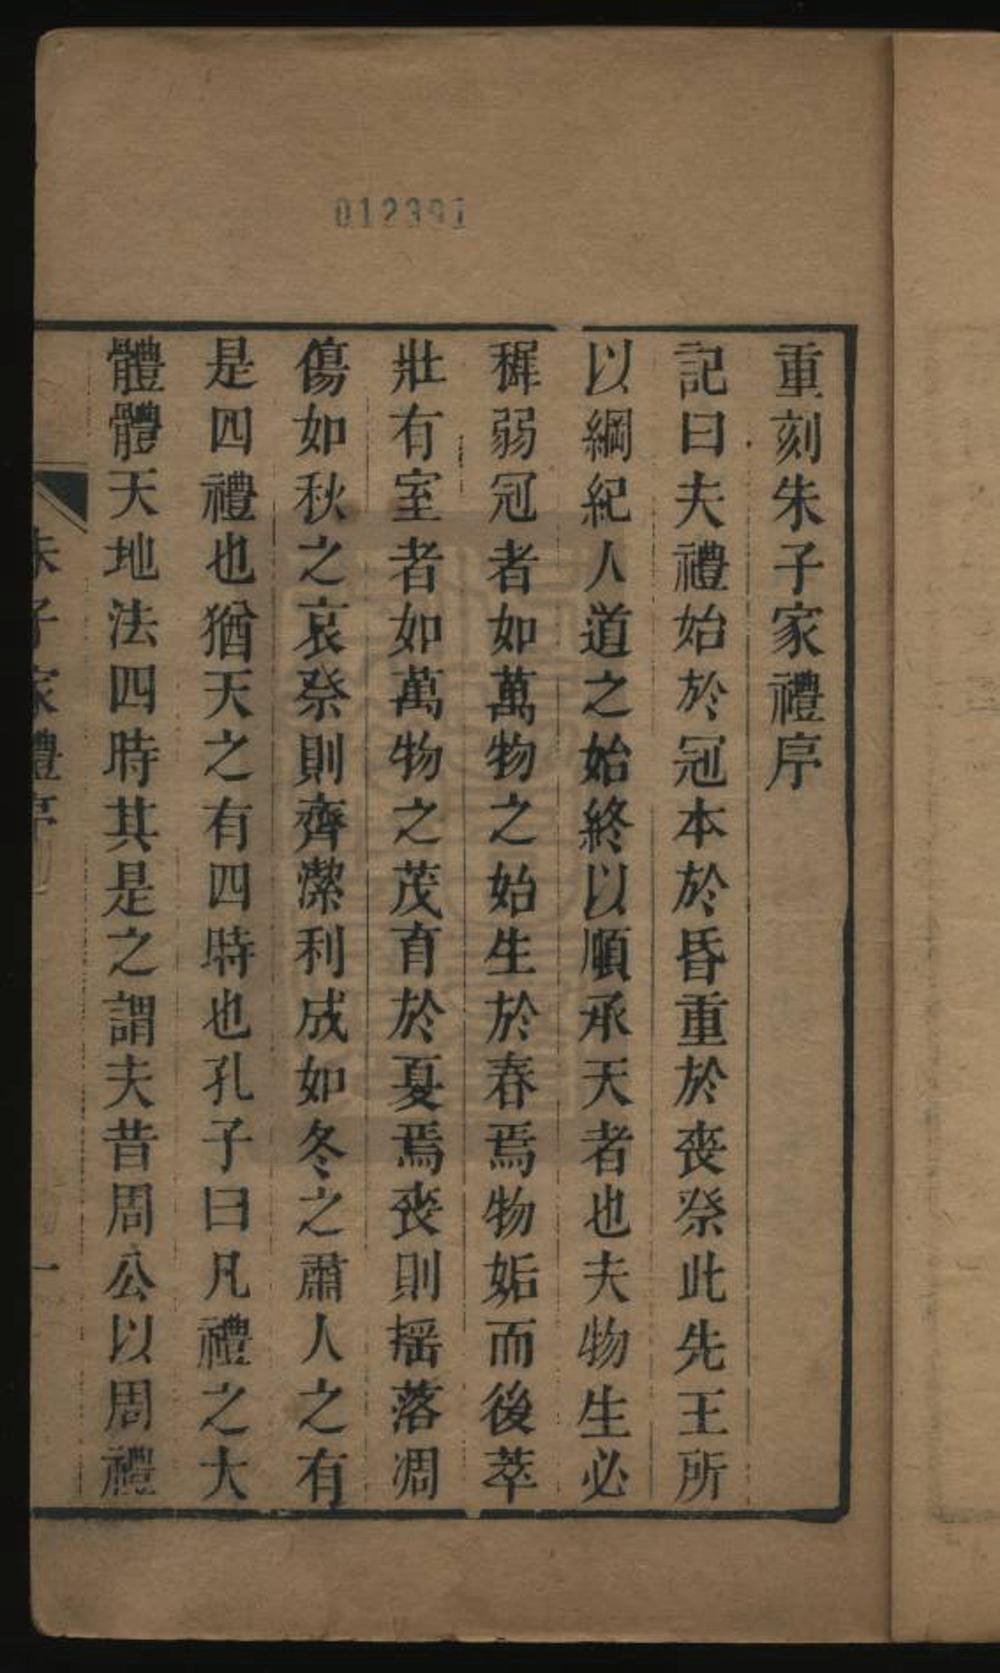 012391
重刻朱子家禮序
記曰夫禮始於冠本於昏重於喪祭此先王所
以綱紀人道之始終以順承天者也夫物生必
穉弱冠者如萬物之始生於春焉物姤而後萃
壯有室者如萬物之茂育於夏焉喪則揺落凋
傷如秋之哀祭則齊潔利成如冬之肅人之有
是四禮也猶天之有四時也孔子曰凡禮之大
體體天地法四時其是之謂夫昔周公以周禮
朱子家禮序
一